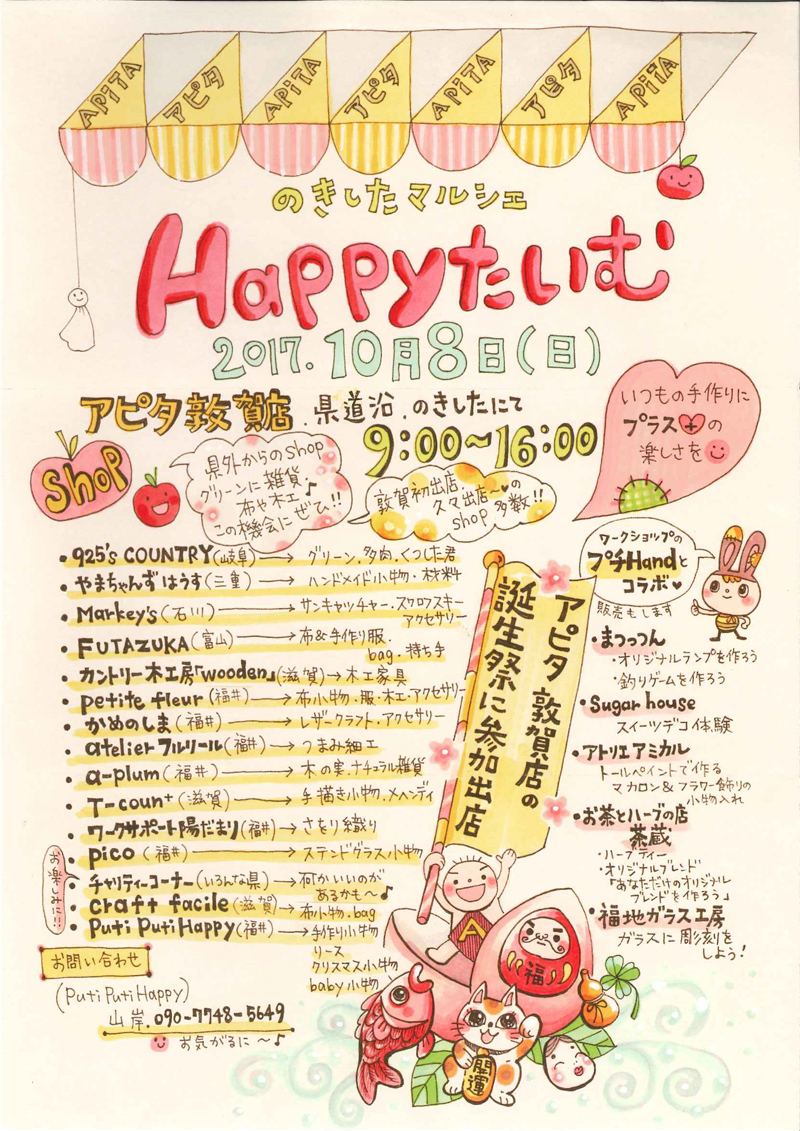 APiTA アピタ APiTA アピタ APiTA アピタ APiTA
のきしたマルシェ
Happyたいむ
2017.10月8日(日)
アピタ敦賀店.県道沿.のきしたにて
9:00〜16:00
いつもの手作りに
プラス+の
楽しさを
shop
県外からのshop
グリーンに雑貨♪
布や木工
この機会にぜひ!!
敦賀初出店.
久々出店〜♥の
shop多数!!
・925's COUNTRY(岐阜)→グリーン.多肉.くつした君
・やまちゃんずはうす(三重)→ハンドメイド小物・材料
・Markey's(石川)→サンキャッチャー・スワロフスキー
アクセサリー
・FUTAZUKA(富山)→布&手作り服.
bag.持ち手
・カントリー木工房「wooden」(滋賀)→木工家具
・petite fleur(福井)→布小物・服・木工・アクセサリー
・かめのしま(福井)→レザークラフト.アクセサリー
・atelierフルリール(福井)→つまみ細工
・a-plum(福井)→木の実.ナチュラル雑貨
・T-coun+(滋賀)→手描き小物.メヘンディ
・ワークサポート陽だまり(福井)→さをり織り
・pico(福井)→ステンドグラス小物
・チャリティーコーナー(いろんな県)→何かいいのが
あるかも〜♪
・craft facile(滋賀)→布小物.bag
・Puti Puti Happy(福井)→手作り小物
リース
クリスマス小物
baby小物
お楽しみに!!
お問い合わせ
(Puti Puti Happy)
山岸.090-7748-5649
お気がるに〜♪
アピタ敦賀店の
誕生祭に参加出店
ワークショップの
プチHandと
コラボ♥
販売もします
・まつっつん
・オリジナルランプを作ろう
・釣りゲームを作ろう
・Sugar house
スイーツデコ体験
・アトリエアミカル
トールペイントで作る
マカロン&フラワー飾りの
小物入れ
・お茶とハーブの店
茶蔵
・ハーブティー
・オリジナルブレンド
「あなただけのオリジナル
ブレンドを作ろう」
・福地ガラス工房
ガラスに彫刻を
しよう!
A
福
開運